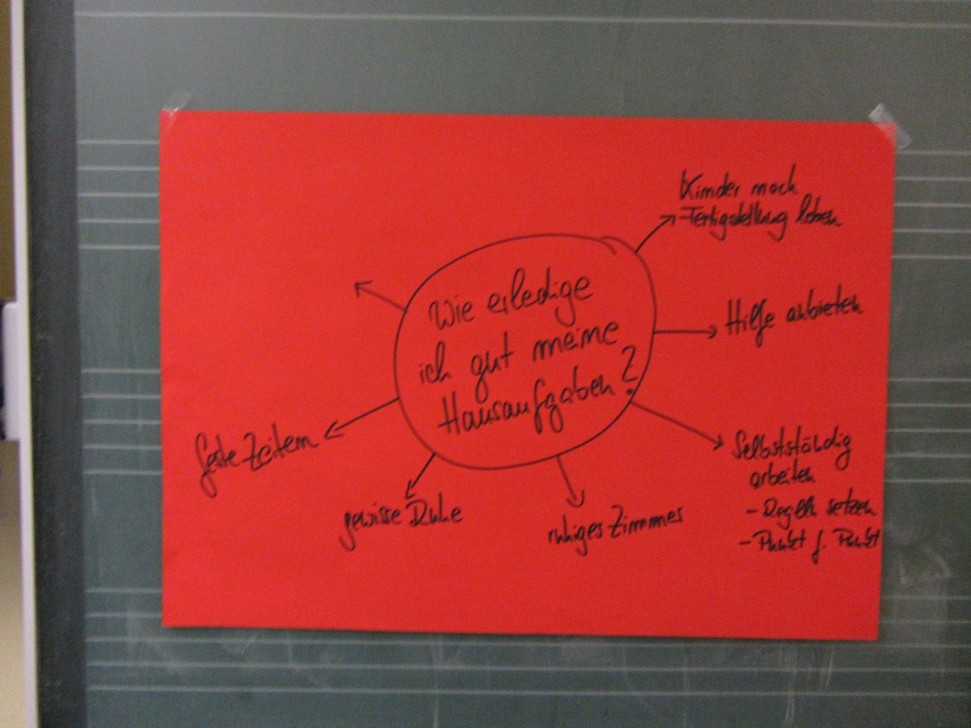 Wie erledige
ich gut meine
Hausaufgaben?
Kinder nach
Fertigstellung loben
Hilfe anbieten
Selbstständig
arbeiten
- Regeln setzen
- Punkt f. Punkt
ruhiges Zimmer
gewisse Ruhe
feste Zeiten